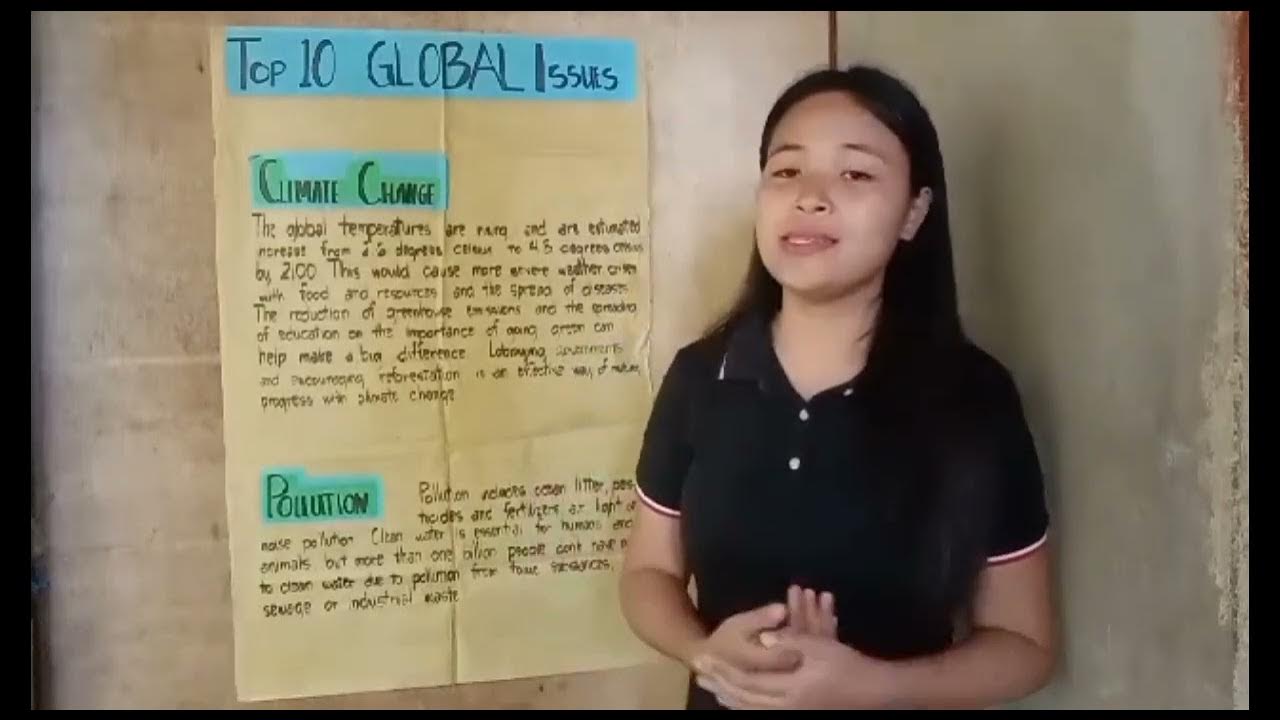 TOP 10 GLOBAL ISSUES
CLIMATE CHANGE
The global temperatures are rising and are estimated
increase from degrees celsius to 4.5 degrees celsius
by 2100 This would cause more severe weather crises
with food and resources and the spread of diseases
The reduction of greenhouse emissions and the spreading
of education on the importance of going green can
help make a big difference Lobbying governments
and encouraging reforestation is an effective way of making
progress with climate change
POLLUTION
Pollution includes ocean litter, pes-
ticides and fertilizers air light or
noise pollution Clean water is essential for humans and
animals but more than one billion people dont have
to clean water due to pollution from toxic substances,
sewage or industrial waste